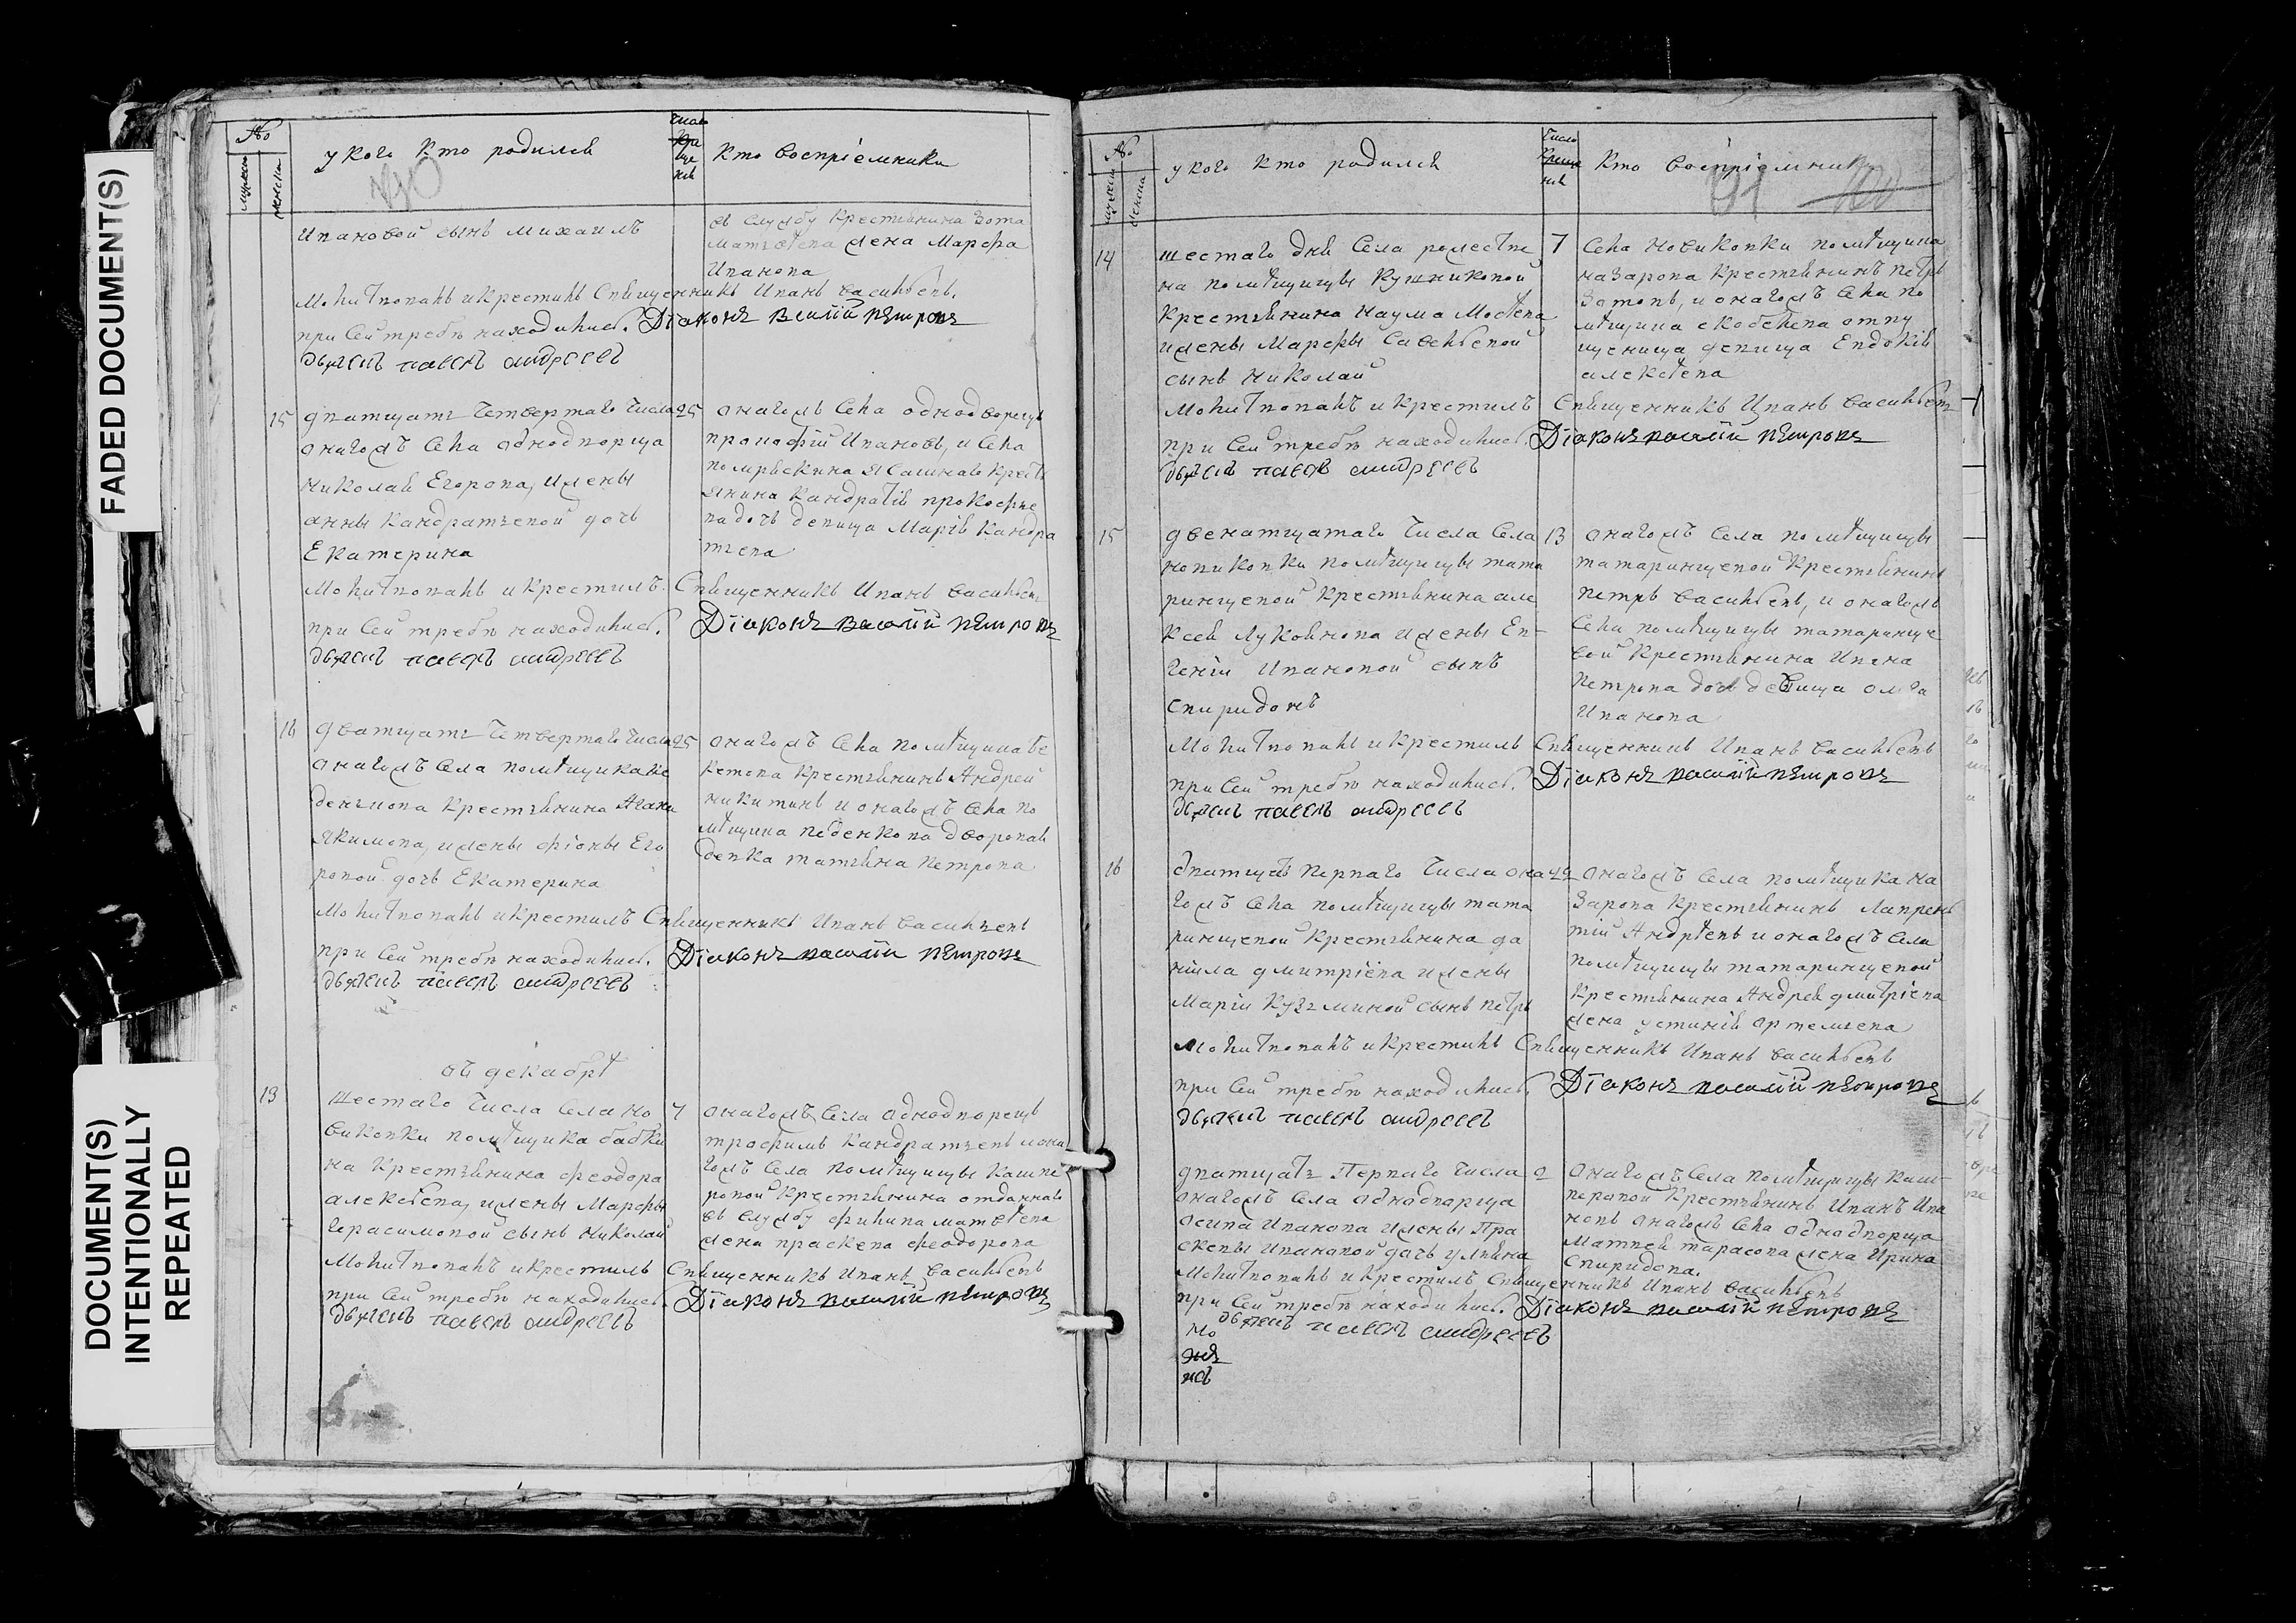 FADED DOCUMENT(S)
DOCUMENT(S)
INTENTIONALLY
REPEATED
№
мужеска
женска
у кого кто родился
число
кто восприемники
Ивановой сынъ михаилъ
въ службу крестьянина Зота
матвѣева жена Марфа
Иванова
Молитвовалъ и крестилъ Священникъ Иванъ васильевъ.
при сей требѣ находились. Діаконъ василій петровъ
дьячекъ павелъ андреевъ
15 дватцать четвертаго числа 25
онагожъ села однодворца
николая Егорова, и жены
анны кандратьевой дочь
Екатерина
онагожъ села однодворецъ
Ивановъ, и села
крестьянина кандратія прокофье
ва дочь девица Марія кандра
тьева
Молитвовалъ и крестилъ. Священникъ Иванъ васильевъ
при сей требѣ находились. Діаконъ василій петровъ
дьячекъ павелъ андреевъ
16 дватцать четвертаго числа 25
онагожъ села помѣщика
крестьянина
якимова, и жены фіоны Его
ровой дочь Екатерина
онагожъ села помѣщика
крестьянинъ Андрей
никитинъ и онагожъ села по
мѣщика дворовая
девка татьяна петрова
Молитвовалъ и крестилъ Священникъ Иванъ васильевъ
при сей требѣ находились. Діаконъ василій петровъ
дьячекъ павелъ андреевъ
въ декабрѣ
13 шестаго числа села но 7
виковки помѣщика бабки
на крестьянина феодора
алексѣева, и жены Марфы
герасимовой сынъ николай
онагожъ села однодворецъ
трофимъ кандратьевъ и она
гожъ села помѣщицы кашпе
ровой крестьянина отданнаго
въ службу филипа матвѣева
жена праскева феодорова
Молитвовалъ и крестилъ Священникъ Иванъ васильевъ
при сей требѣ находились. Діаконъ василій петровъ
дьячекъ павелъ андреевъ
№
мужеска
женска
у кого кто родился
число
кто восприемники
14 шестаго дня села рождестве
на помѣщицы Кушниковой
крестьянина наума Мосѣева
и жены Марфы Савельевой
сынъ николай
7 села новиковки помѣщика
назарова крестьянинъ петръ
Зотовъ, и онагожъ села по
мѣщика отпу
щеница девица Евдокія
алексѣева
Молитвовалъ и крестилъ Священникъ Иванъ васильевъ
при сей требѣ находились. Діаконъ василій петровъ
дьячекъ павелъ андреевъ
15 двенатцатаго числа села 13
новиковки помѣщицы тата
ринцевой крестьянина але
ксея Лукоянова и жены Ев
геніи Ивановой сынъ
спиридонъ
онагожъ села помѣщицы
татаринцевой крестьянинъ
петръ васильевъ, и онагожъ
села помѣщицы татаринце
вой крестьянина Ивана
петрова дочь девица олга
Иванова
Молитвовалъ и крестилъ Священникъ Иванъ васильевъ
при сей требѣ находились. Діаконъ василій петровъ
дьячекъ павелъ андреевъ
16 дватцать перваго числа она 22
гожъ села помѣщицы тата
ринцевой крестьянина да
нила дмитріева и жены
Маріи кузьминой сынъ петръ
онагожъ села помѣщика на
зарова крестьянинъ лаврен
тій Андрѣевъ и онагожъ села
помѣщицы татаринцевой
крестьянина Андрея дмитріева
жена устинія артемьева
Молитвовалъ и крестилъ Священникъ Иванъ васильевъ
при сей требѣ находились. Діаконъ василій петровъ
дьячекъ павелъ андреевъ
дватцать перваго числа 2
онагожъ села однодворца
осипа Иванова и жены Пра
скевы Ивановой дочь ульяна
онагожъ села помѣщицы каш
перовой крестьянинъ Иванъ Ива
новъ онагожъ села однодворца
Матвея тарасова жена Ирина
спиридова.
Молитвовалъ и крестилъ Священникъ Иванъ васильевъ
при сей требѣ находились. Діаконъ василій петровъ
дьячекъ павелъ андреевъ